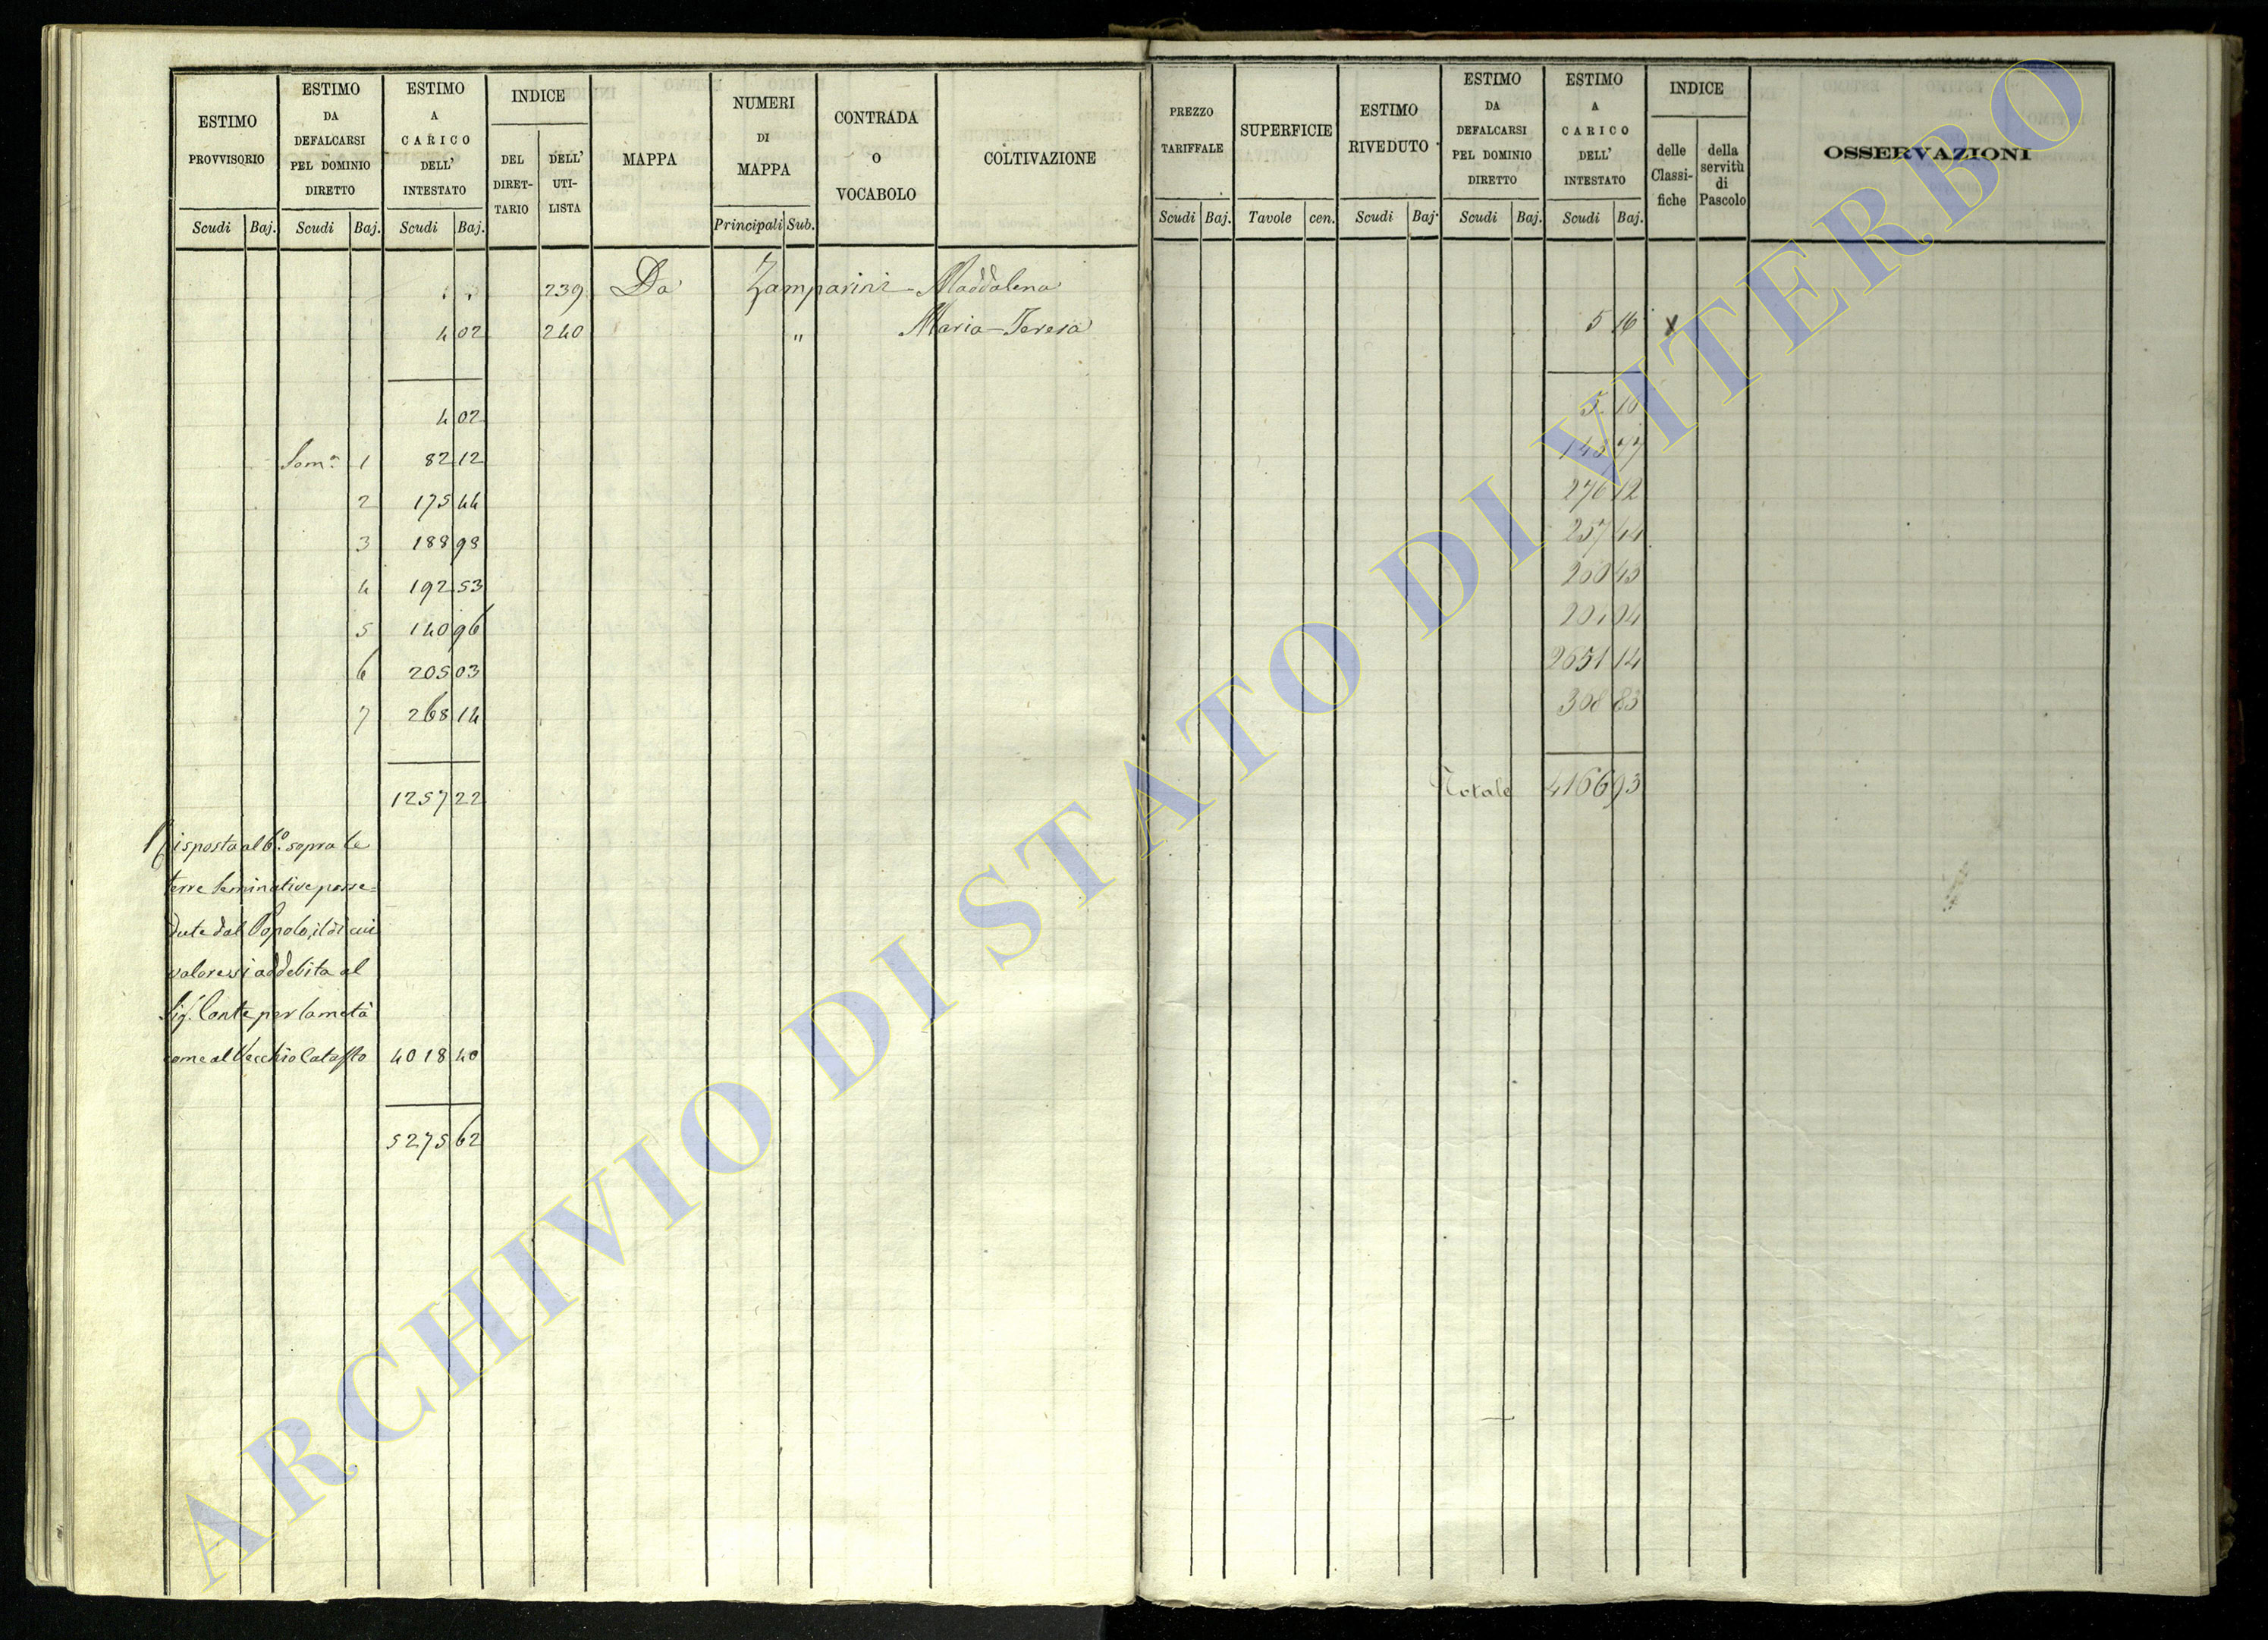 ESTIMO PROVVISORIO
ESTIMO DA DEFALCARSI PEL DOMINIO DIRETTO
ESTIMO A CARICO DELL' INTESTATO
INDICE
DEL DIRET-TARIO
DELL' UTI-LISTA
MAPPA
NUMERI DI MAPPA
CONTRADA O VOCABOLO
COLTIVAZIONE
Scudi Baj. Scudi Baj. Scudi Baj. Principali Sub.
239 Da Zamparini Maddalena
4 02 240 " Maria Teresa
4 02
Som.ª 1 82 12
2 175 44
3 188 98
4 192 53
5 140 96
6 205 03
7 268 14
1257 22
Risposta al 6.º sopra le
terre seminative posse=
dute dal Popolo, il di cui
valore si addebita al
Sig. Conte per la metà
come al Vecchio Catasto 4018 40
5275 62
PREZZO TARIFFALE
SUPERFICIE
ESTIMO RIVEDUTO
ESTIMO DA DEFALCARSI PEL DOMINIO DIRETTO
ESTIMO A CARICO DELL' INTESTATO
INDICE
delle Classi-fiche
della servitù di Pascolo
OSSERVAZIONI
Scudi Baj. Tavole cen. Scudi Baj. Scudi Baj. Scudi Baj.
5 16 x
5 16
276 12
257 44
2651 14
308 83
Totale 4166 93
ARCHIVIO DI STATO DI VITERBO